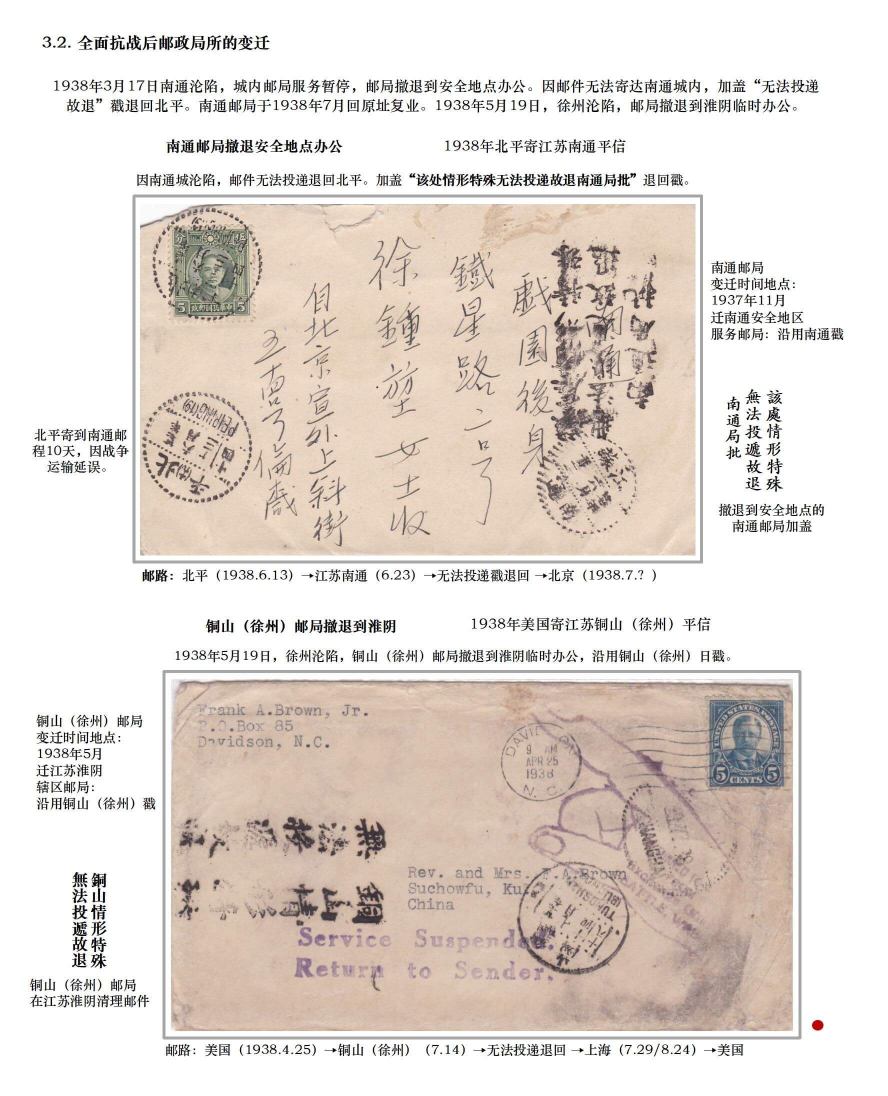 3.2. 全面抗战后邮政局所的变迁
1938年3月17日南通沦陷，城内邮局服务暂停，邮局撤退到安全地点办公。因邮件无法寄达南通城内，加盖“无法投递
故退”戳退回北平。南通邮局于1938年7月回原址复业。1938年5月19日，徐州沦陷，邮局撤退到淮阴临时办公。
南通邮局撤退安全地点办公
1938年北平寄江苏南通平信
因南通城沦陷，邮件无法投递退回北平。加盖“该处情形特殊无法投递故退南通局批”退回戳。
南通
戲園後身
鐵星路二号
徐鍾 女士收
自北京宣外上斜街
五十四号
5
5
PEIPING (19)
北平
北平寄到南通邮
程10天，因战争
运输延误。
南通邮局
变迁时间地点：
1937年11月
迁南通安全地区
服务邮局：沿用南通戳
該處情形特殊
無法投遞故退
南通局批
撤退到安全地点的
南通邮局加盖
邮路：北平（1938.6.13）→江苏南通（6.23）→无法投递戳退回 →北京（1938.7.? ）
铜山（徐州）邮局撤退到淮阴
1938年美国寄江苏铜山（徐州）平信
1938年5月19日，徐州沦陷，铜山（徐州）邮局撤退到淮阴临时办公，沿用铜山（徐州）日戳。
铜山（徐州）邮局
变迁时间地点：
1938年5月
迁江苏淮阴
辖区邮局：
沿用铜山（徐州）戳
銅山情形特殊
無法投遞故退
铜山（徐州）邮局
在江苏淮阴清理邮件
Frank A.Brown, Jr.
P.O.Box 85
Davidson, N.C.
DAVIDSON
9 AM
APR 25
1938
N. C.
UNITED STATES POSTAGE
5 CENTS 5
SHANGHAI
SEATTLE
無法投
銅山情
Rev. and Mrs. F.A.Brown
Suchowfu, Ku
China
TUNGSHAN
Service Suspended.
Return to Sender.
邮路：美国（1938.4.25）→铜山（徐州）（7.14）→无法投递退回 →上海（7.29/8.24）→美国